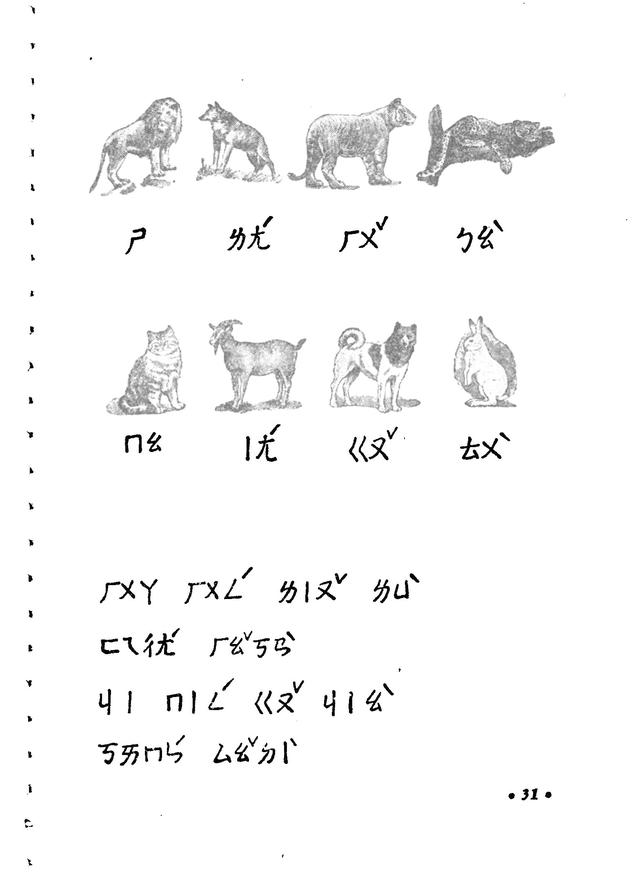 ㄕ ㄌㄤˊ ㄏㄨˇ ㄅㄠˋ
ㄇㄠ ㄧㄤˊ ㄍㄡˇ ㄊㄨˋ
ㄏㄨㄚ ㄏㄨㄥˊ ㄌㄧㄡˇ ㄌㄩˋ
ㄈㄟㄔㄤˊ ㄏㄠˇㄎㄢˋ
ㄐㄧ ㄇㄧㄥˊ ㄍㄡˇ ㄐㄧㄠˋ
ㄎㄞㄇㄣˊ ㄙㄠˇㄉㄧˋ
• 31 •